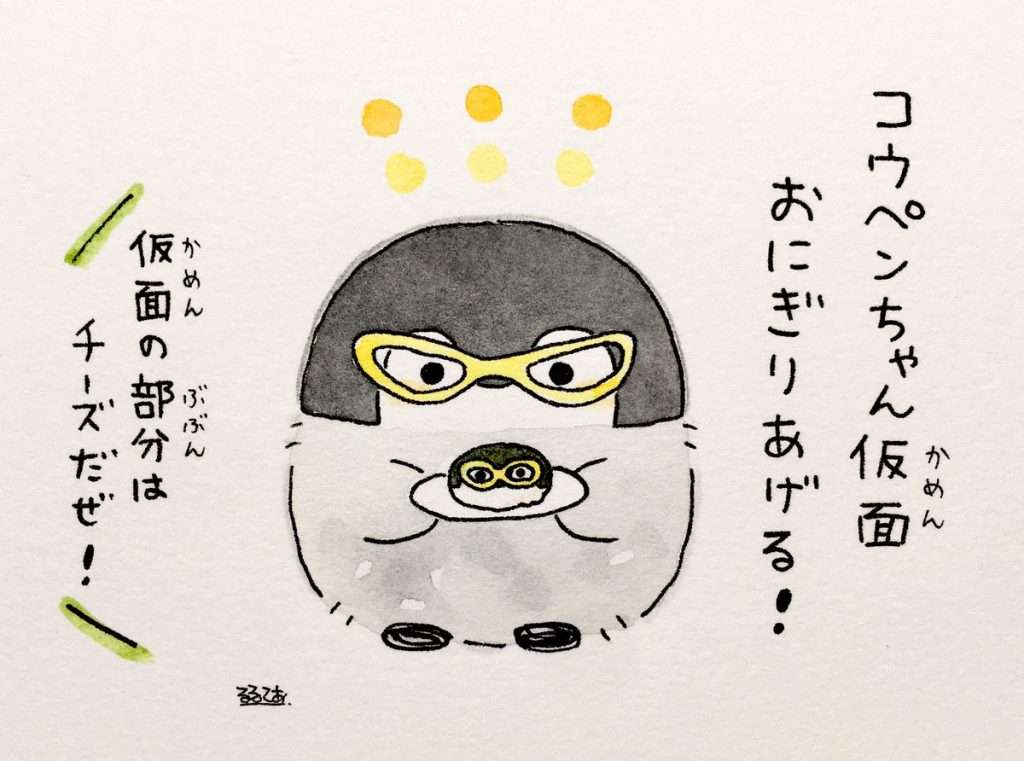 コウペンちゃん仮面
かめん
おにぎりあげる!
仮面の部分は
かめん ぶぶん
チーズだぜ!
るるてあ